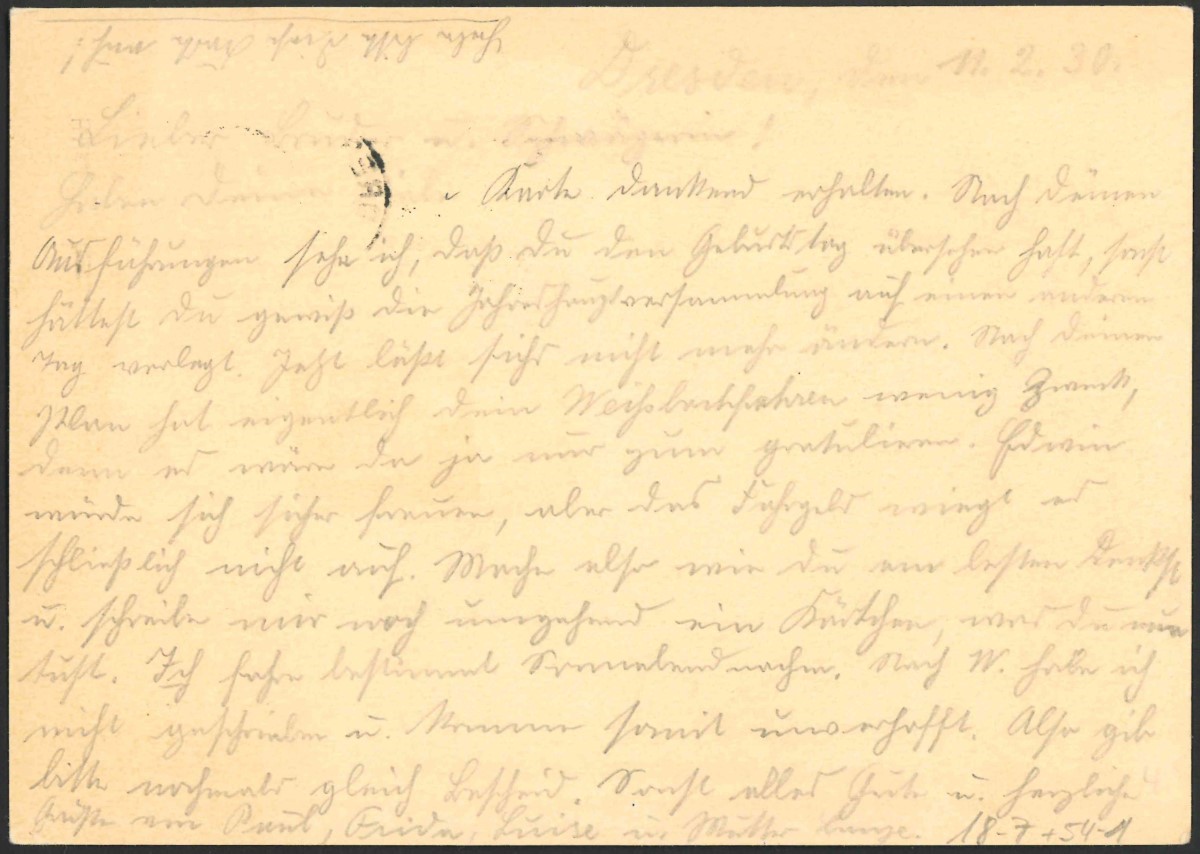 Dresden, den 11. 2. 30.
Lieber Bruder u. Schwägerin!
Haben Deine Karte dankend erhalten. Nach Deinen
Ausführungen sehe ich, daß Du den Geburtstag übersehen hast, sonst
hättest Du gewiß die Jahreshauptversammlung auf einen anderen
Tag verlegt. Jetzt läßt sichs nicht mehr ändern. Nach Deinem
Plan hat eigentlich dein wenig Zweck,
denn es wäre da ja nur zum gratulieren. Edwin
würde sich sicher freuen, aber das Fahrgeld wiegt es
schließlich nicht auf. Mache also wie Du am besten denkst
u. schreibe mir noch umgehend ein Kärtchen, was Du nun
tust. Ich fahre bestimmt Sonnabend nachm. Nach W. habe ich
nicht geschrieben u. komme somit unverhofft. Also gib
bitte nochmals gleich Bescheid. Sonst alles Gute u. herzliche
Grüße von Paul, Frida, Luise u. Mutter 18-7+54-1